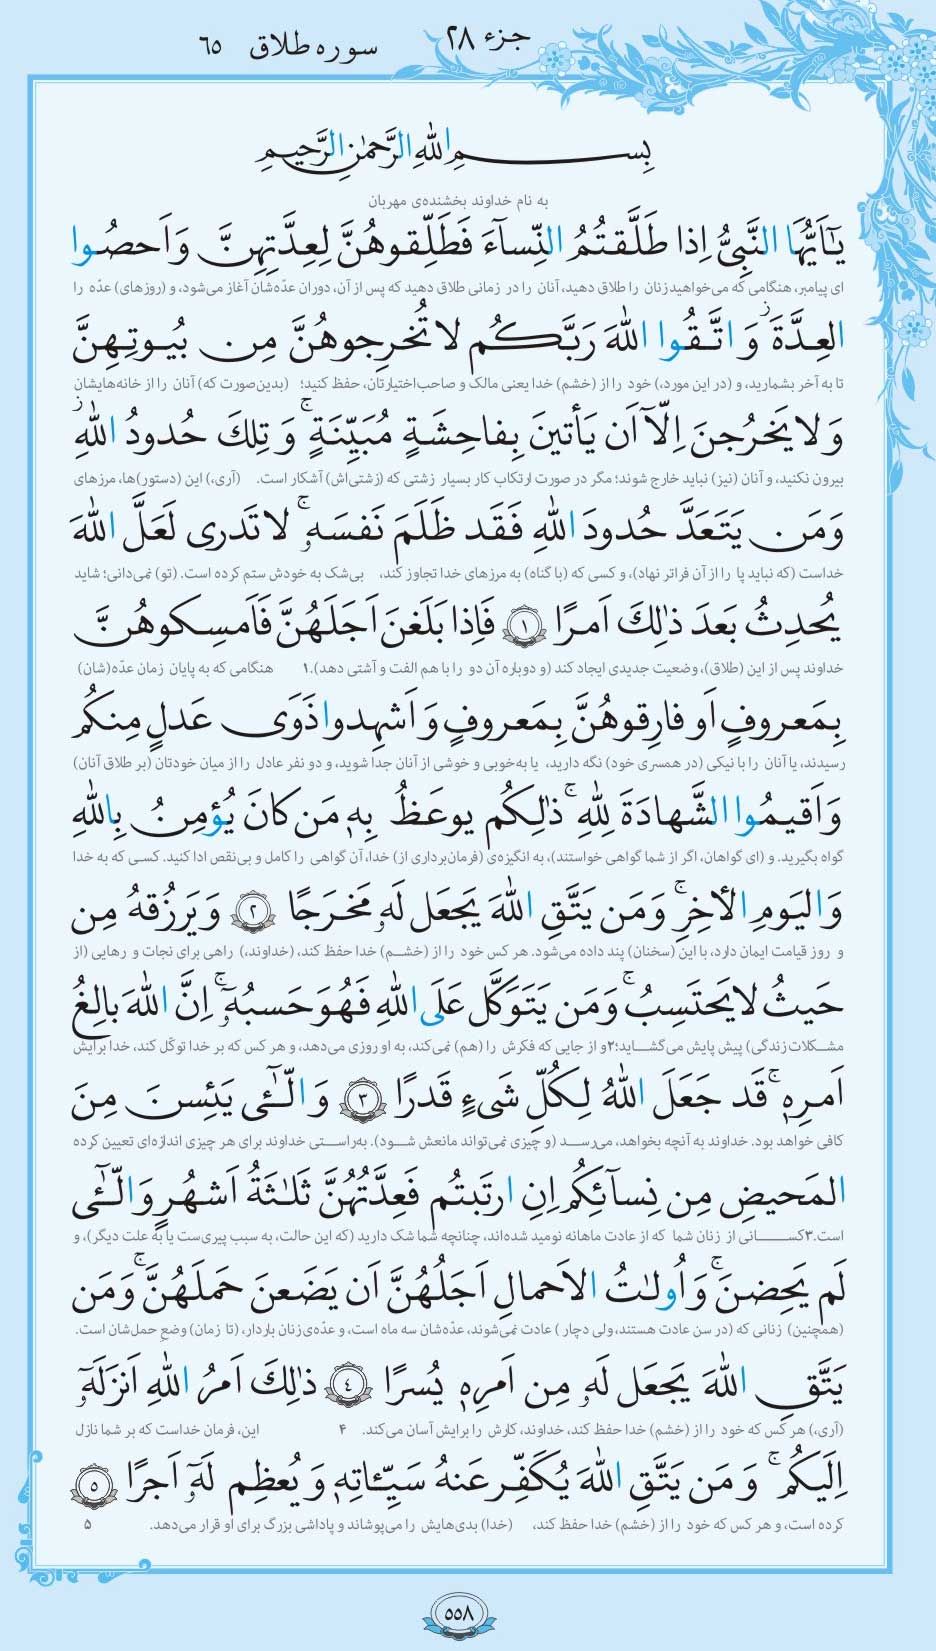 جزء ۲۸
سوره طلاق ۶۵
بِسمِ اللهِ الرَّحمٰنِ الرَّحيمِ
به نام خداوند بخشنده‌ی مهربان
يٰٓاَيُّهَا النَّبِىُّ اِذا طَلَّقتُمُ النِّسآءَ فَطَلِّقوهُنَّ لِعِدَّتِهِنَّ وَ اَحصُوا
ای پیامبر، هنگامی که می‌خواهید زنان را طلاق دهید، آنان را در زمانی طلاق دهید که پس از آن، دوران عدّه‌شان آغاز می‌شود، و (روزهای) عدّه را
العِدَّةَ ز وَ اتَّقُوا اللهَ رَبَّكُم لا تُخرِجوهُنَّ مِن بُيوتِهِنَّ
تا به آخر بشمارید، و (در این مورد،) خود را از (خشم) خدا یعنی مالک و صاحب‌اختیارتان، حفظ کنید؛ (بدین‌صورت که) آنان را از خانه‌هایشان
وَ لا يَخرُجنَ اِلّآ اَن يَأتينَ بِفاحِشَةٍ مُبَيِّنَةٍ ج وَ تِلكَ حُدودُ اللهِ ز
بیرون نکنید، و آنان (نیز) نباید خارج شوند؛ مگر در صورت ارتکاب کار بسیار زشتی که (زشتی‌اش) آشکار است. (آری،) این (دستور)ها، مرزهای
وَ مَن يَتَعَدَّ حُدودَ اللهِ فَقَد ظَلَمَ نَفسَهٗ ج لا تَدرى لَعَلَّ اللهَ
خداست (که نباید پا را از آن فراتر نهاد)، و کسی که (با گناه) به مرزهای خدا تجاوز کند، بی‌شک به خودش ستم کرده است. (تو) نمی‌دانی؛ شاید
يُحدِثُ بَعدَ ذٰلِكَ اَمرًا ۱ فَاِذا بَلَغنَ اَجَلَهُنَّ فَاَمسِكوهُنَّ
خداوند پس از این (طلاق)، وضعیت جدیدی ایجاد کند (و دوباره آن دو را با هم الفت و آشتی دهد).۱ هنگامی که به پایان زمان عدّه(شان)
بِمَعروفٍ اَو فارِقوهُنَّ بِمَعروفٍ وَ اَشهِدوا ذَوَى عَدلٍ مِنكُم
رسیدند، یا آنان را با نیکی (در همسری خود) نگه دارید، یا به‌خوبی و خوشی از آنان جدا شوید، و دو نفر عادل را از میان خودتان (بر طلاق آنان)
وَ اَقيمُوا الشَّهادَةَ لِلّٰهِ ج ذٰلِكُم يوعَظُ بِهٖ مَن كانَ يُؤمِنُ بِاللهِ
گواه بگیرید. و (ای گواهان، اگر از شما گواهی خواستند)، به انگیزه‌ی (فرمان‌برداری از) خدا، آن گواهی را کامل و بی‌نقص ادا کنید. کسی که به خدا
وَ اليَومِ الأخِرِ ج وَ مَن يَتَّقِ اللهَ يَجعَل لَهٗ مَخرَجًا ۲ وَ يَرزُقهُ مِن
و روز قیامت ایمان دارد، با این (سخنان) پند داده می‌شود. هر کس خود را از (خشم) خدا حفظ کند، (خداوند،) راهی برای نجات و رهایی (از
حَيثُ لا يَحتَسِبُ ج وَ مَن يَتَوَكَّل عَلَى اللهِ فَهُوَ حَسبُهٗٓ ج اِنَّ اللهَ بالِغُ
مشکلات زندگی) پیش پایش می‌گشاید؛۲و از جایی که فکرش را (هم) نمی‌کند، به او روزی می‌دهد، و هر کس که بر خدا توکّل کند، خدا برایش
اَمرِهٖ ج قَد جَعَلَ اللهُ لِكُلِّ شَىءٍ قَدرًا ۳ وَ الّٰٓئى يَئِسنَ مِنَ
کافی خواهد بود. خداوند به آنچه بخواهد، می‌رسد (و چیزی نمی‌تواند مانعش شود). به‌راستی خداوند برای هر چیزی اندازه‌ای تعیین کرده
المَحيضِ مِن نِسآئِكُم اِنِ ارتَبتُم فَعِدَّتُهُنَّ ثَلٰثَةُ اَشهُرٍ وَ الّٰٓئى
است.۳کسانی از زنان شما که از عادت ماهانه نومید شده‌اند، چنانچه شما شک دارید (که این حالت، به سبب پیری‌ست یا به علت دیگر)، و
لَم يَحِضنَ ج وَ اُولٰتُ الاَحمالِ اَجَلُهُنَّ اَن يَضَعنَ حَملَهُنَّ ج وَ مَن
(همچنین) زنانی که (در سن عادت هستند، ولی دچار) عادت نمی‌شوند، عدّه‌شان سه ماه است، و عدّه‌ی زنان باردار، (تا زمان) وضعِ حمل‌شان است.
يَتَّقِ اللهَ يَجعَل لَهٗ مِن اَمرِهٖ يُسرًا ۴ ذٰلِكَ اَمرُ اللهِ اَنزَلَهٗٓ
(آری،) هر کس که خود را از (خشم) خدا حفظ کند، خداوند، کارش را برایش آسان می‌کند. ۴ این، فرمان خداست که بر شما نازل
اِلَيكُم ج وَ مَن يَتَّقِ اللهَ يُكَفِّر عَنهُ سَيِّـٔاتِهٖ وَ يُعظِم لَهٗٓ اَجرًا ۵
کرده است، و هر کس که خود را از (خشم) خدا حفظ کند، (خدا) بدی‌هایش را می‌پوشاند و پاداشی بزرگ برای او قرار می‌دهد. ۵
۵۵۸